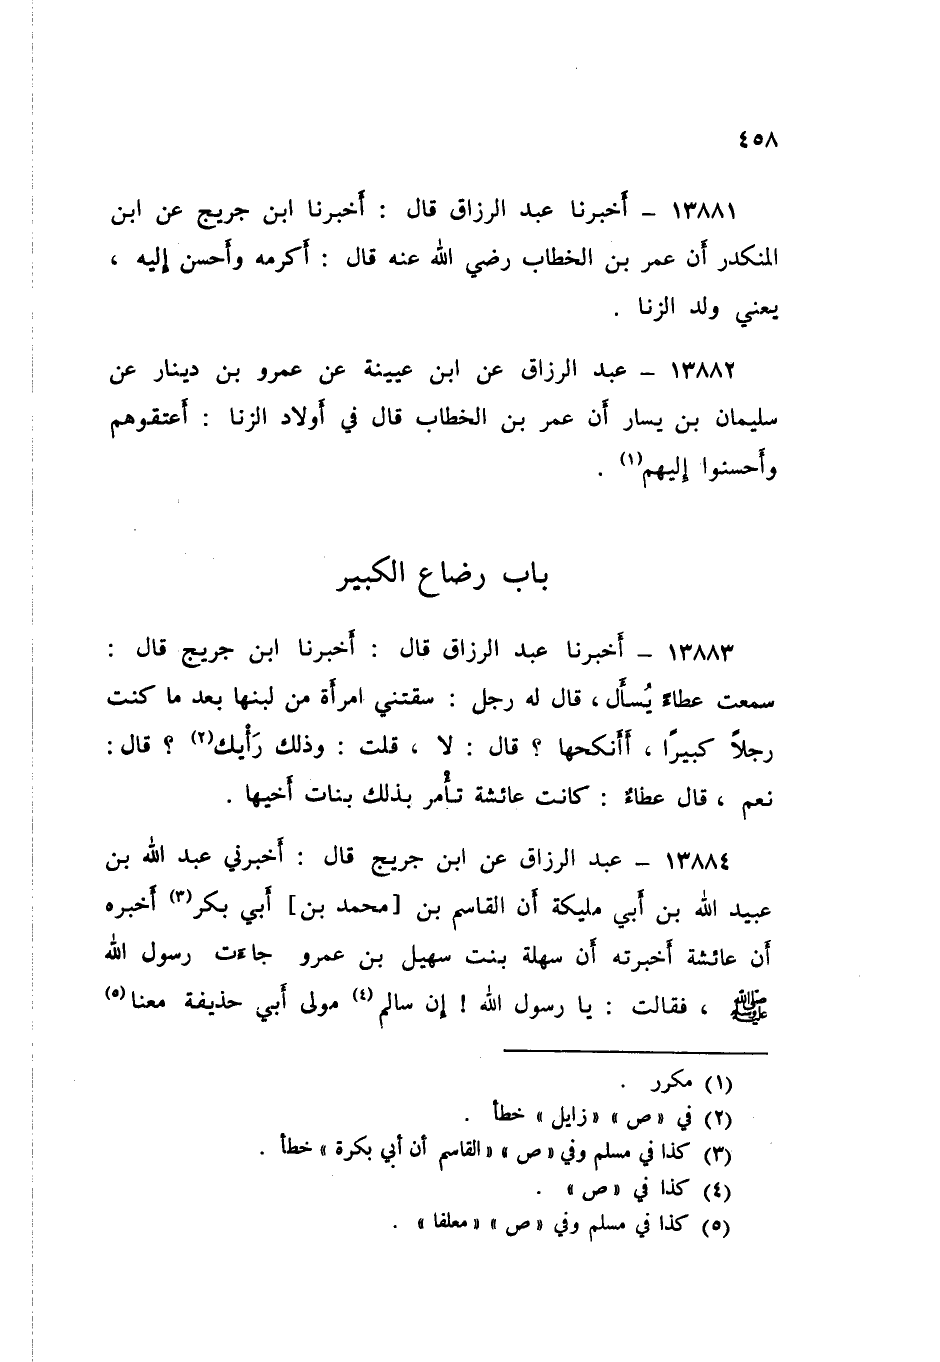 ٤٥٨
١٣٨٨١ – أَخبرنا عبد الرزاق قال : أَخبرنا ابن جريج عن ابن
المنكدر أَن عمر بن الخطاب رضي الله عنه قال : أَكرمه وأَحسن إِليه ،
يعني ولد الزنا .
١٣٨٨٢ – عبد الرزاق عن ابن عيينة عن عمرو بن دينار عن
سليمان بن يسار أَن عمر بن الخطاب قال في أَولاد الزنا : أَعتقوهم
وأَحسنوا إِليهم(١) .
باب رضاع الكبير
١٣٨٨٣ – أَخبرنا عبد الرزاق قال : أَخبرنا ابن جريج قال :
سمعت عطاءً يُسأَل ، قال له رجل : سقتني امرأَة من لبنها بعد ما كنت
رجلاً كبيرًا ، أَأَنكحها ؟ قال : لا ، قلت : وذلك رَأْيك(٢) ؟ قال :
نعم ، قال عطاءٌ : كانت عائشة تأْمر بذلك بنات أَخيها .
١٣٨٨٤ – عبد الرزاق عن ابن جريج قال : أَخبرني عبد الله بن
عبيد الله بن أَبي مليكة أَن القاسم بن [محمد بن] أَبي بكر(٣) أَخبره
أَن عائشة أَخبرته أَن سهلة بنت سهيل بن عمرو جاءت رسول الله
ﷺ ، فقالت : يا رسول الله ! إِن سالم(٤) مولى أَبي حذيفة معنا(٥)
(١) مكرر .
(٢) في « ص » « زايل » خطأ .
(٣) كذا في مسلم وفي « ص » « القاسم أن أبي بكرة » خطأ .
(٤) كذا في « ص » .
(٥) كذا في مسلم وفي « ص » « معلفا » .